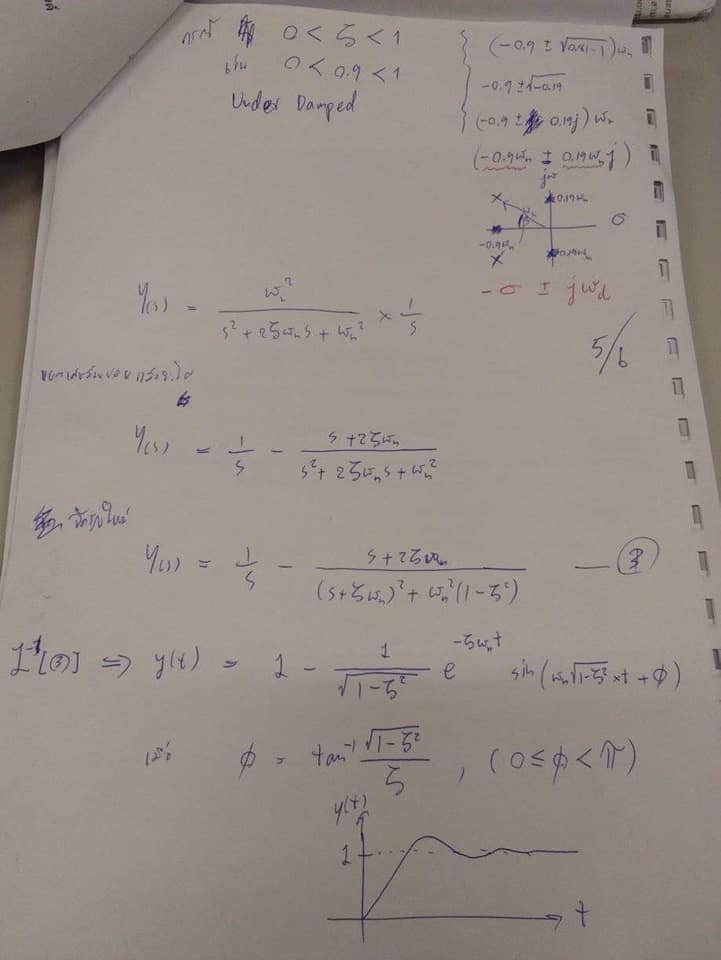 กรณี 0 < ζ < 1
เช่น 0 < 0.9 < 1
Under Damped
(-0.9 ± √0.81-1)ωn
-0.9 ± √-0.19
(-0.9 ± 0.19j) ωn
(-0.9ωn ± 0.19ωn j)
jω
0.19ωn
ωn
σ
-0.9ωn
0.19ωn
-σ ± jωd
5/6
Y(s) = ωn² / (s² + 2ζωns + ωn²) × 1/s
Y(s) = 1/s - (s + 2ζωn) / (s² + 2ζωns + ωn²)
จัดรูปใหม่
Y(s) = 1/s - (s + 2ζωn) / ((s + ζωn)² + ωn²(1 - ζ²)) — ③
L⁻¹[③] ⇒ y(t) = 1 - 1/√1-ζ² e^-ζωnt sin(ωn√1-ζ² × t + φ)
เมื่อ φ = tan⁻¹ √1-ζ² / ζ , (0 ≤ φ < π)
y(t)
1
t